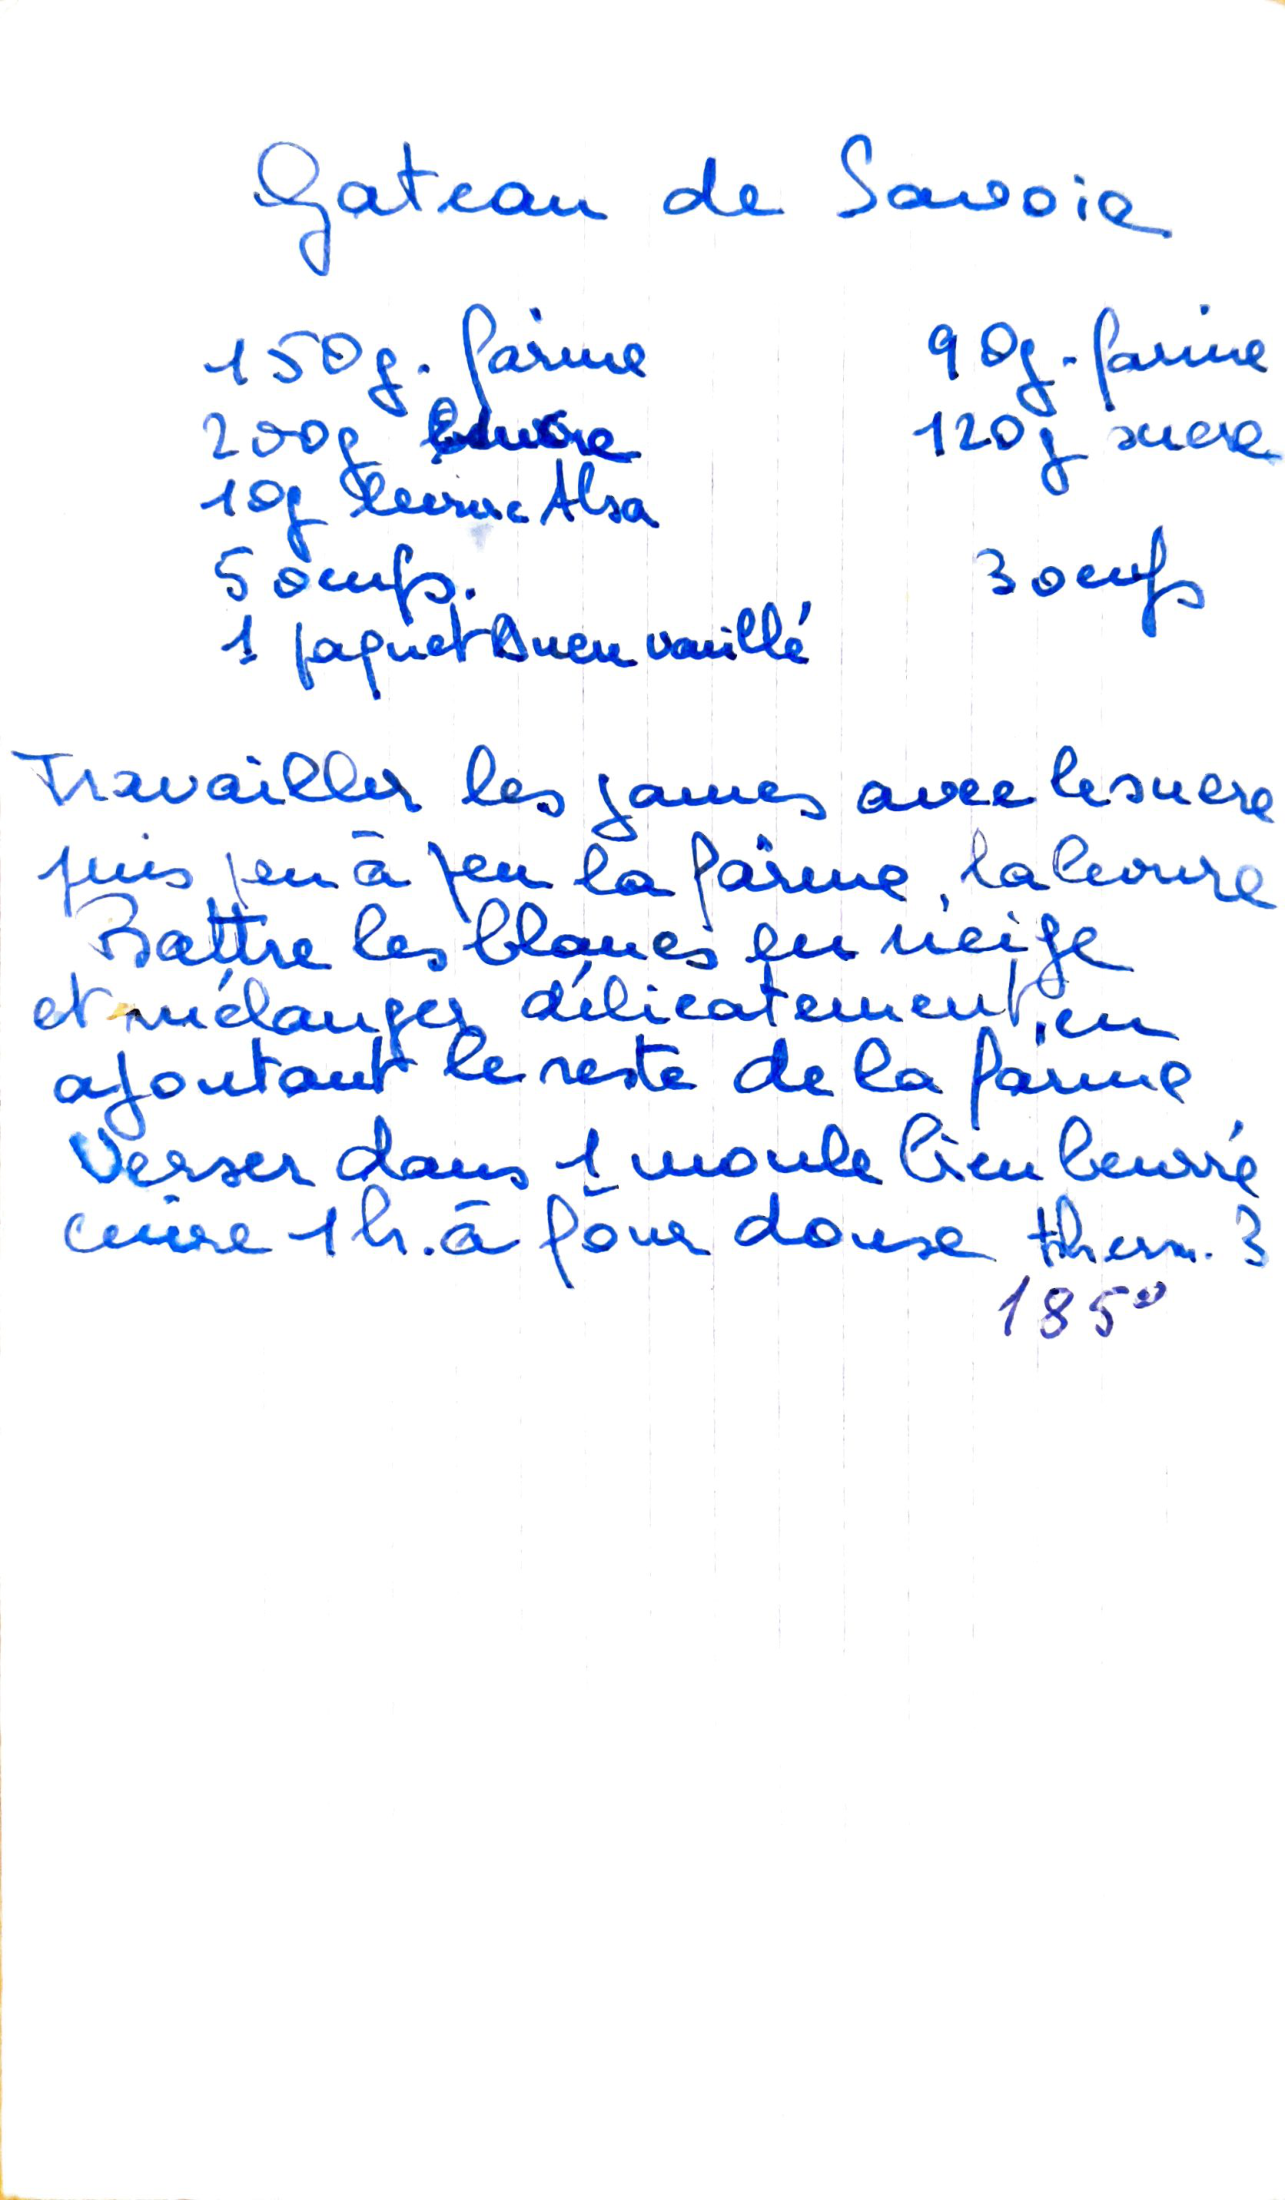 Gateau de Savoie
150g. farine 90g. farine
200g sucre 120g sucre
10g levure Alsa
5 oeufs. 3 oeufs
1 paquet sucre vanillé
Travailler les jaunes avec le sucre
puis peu à peu la farine, la levure
Battre les blancs en neige
et mélanger délicatement, en
ajoutant le reste de la farine
Verser dans 1 moule bien beurré
cuire 1h. à four douse therm. 3
185°